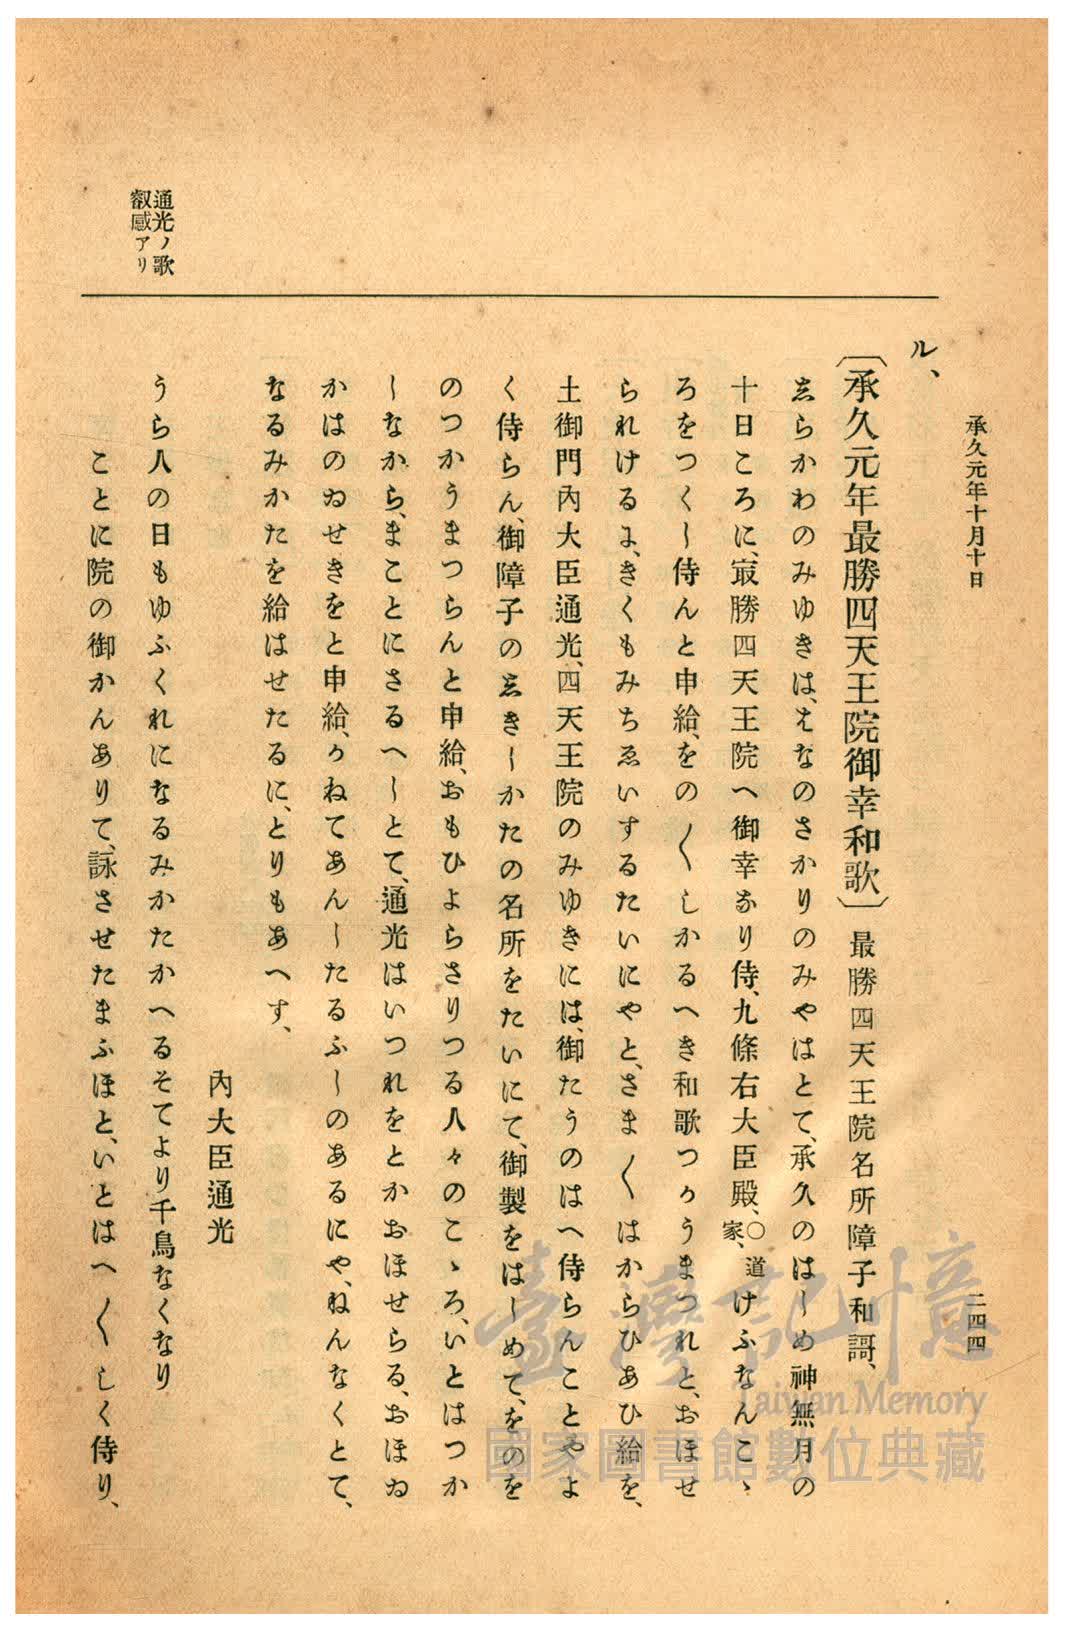 承久元年十月十日
二四四
ル、
〔承久元年最勝四天王院御幸和歌〕 最勝四天王院名所障子和謌、
志らかわのみゆきは、えなのさかりのみやはとて、承久のはしめ神無月の
十日ころに、㝡勝四天王院へ御幸なり侍、九條右大臣殿、〇道家、けふなんこゝ
ろをつくし侍んと申給、をの〳〵しかるへき和歌つかうまつれと、おほせ
られけるに、きくもみちゑいするたいにやと、さま〳〵はからひあひ給を、
土御門內大臣通光、四天王院のみゆきには、御たうのはへ侍らんことやよ
く侍らん、御障子の志きしかたの名所をたいにて、御製をはしめて、をのを
のつかうまつらんと申給、おもひよらさりつる人々のこゝろ、いとはつか
しなから、まことにさるへしとて、通光はいつれをとかおほせらる、おほゐ
かはのゐせきをと申給、かねてあんしたるふしのあるにや、ねんなくとて、
なるみかたを給はせたるに、とりもあへす、
內大臣通光
うら人の日もゆふくれになるみかたかへるそてより千鳥なくなり
ことに院の御かんありて、詠させたまふほと、いとはへ〳〵しく侍り、
通光ノ歌
叡感アリ
臺灣記憶
Taiwan Memory
國家圖書館數位典藏